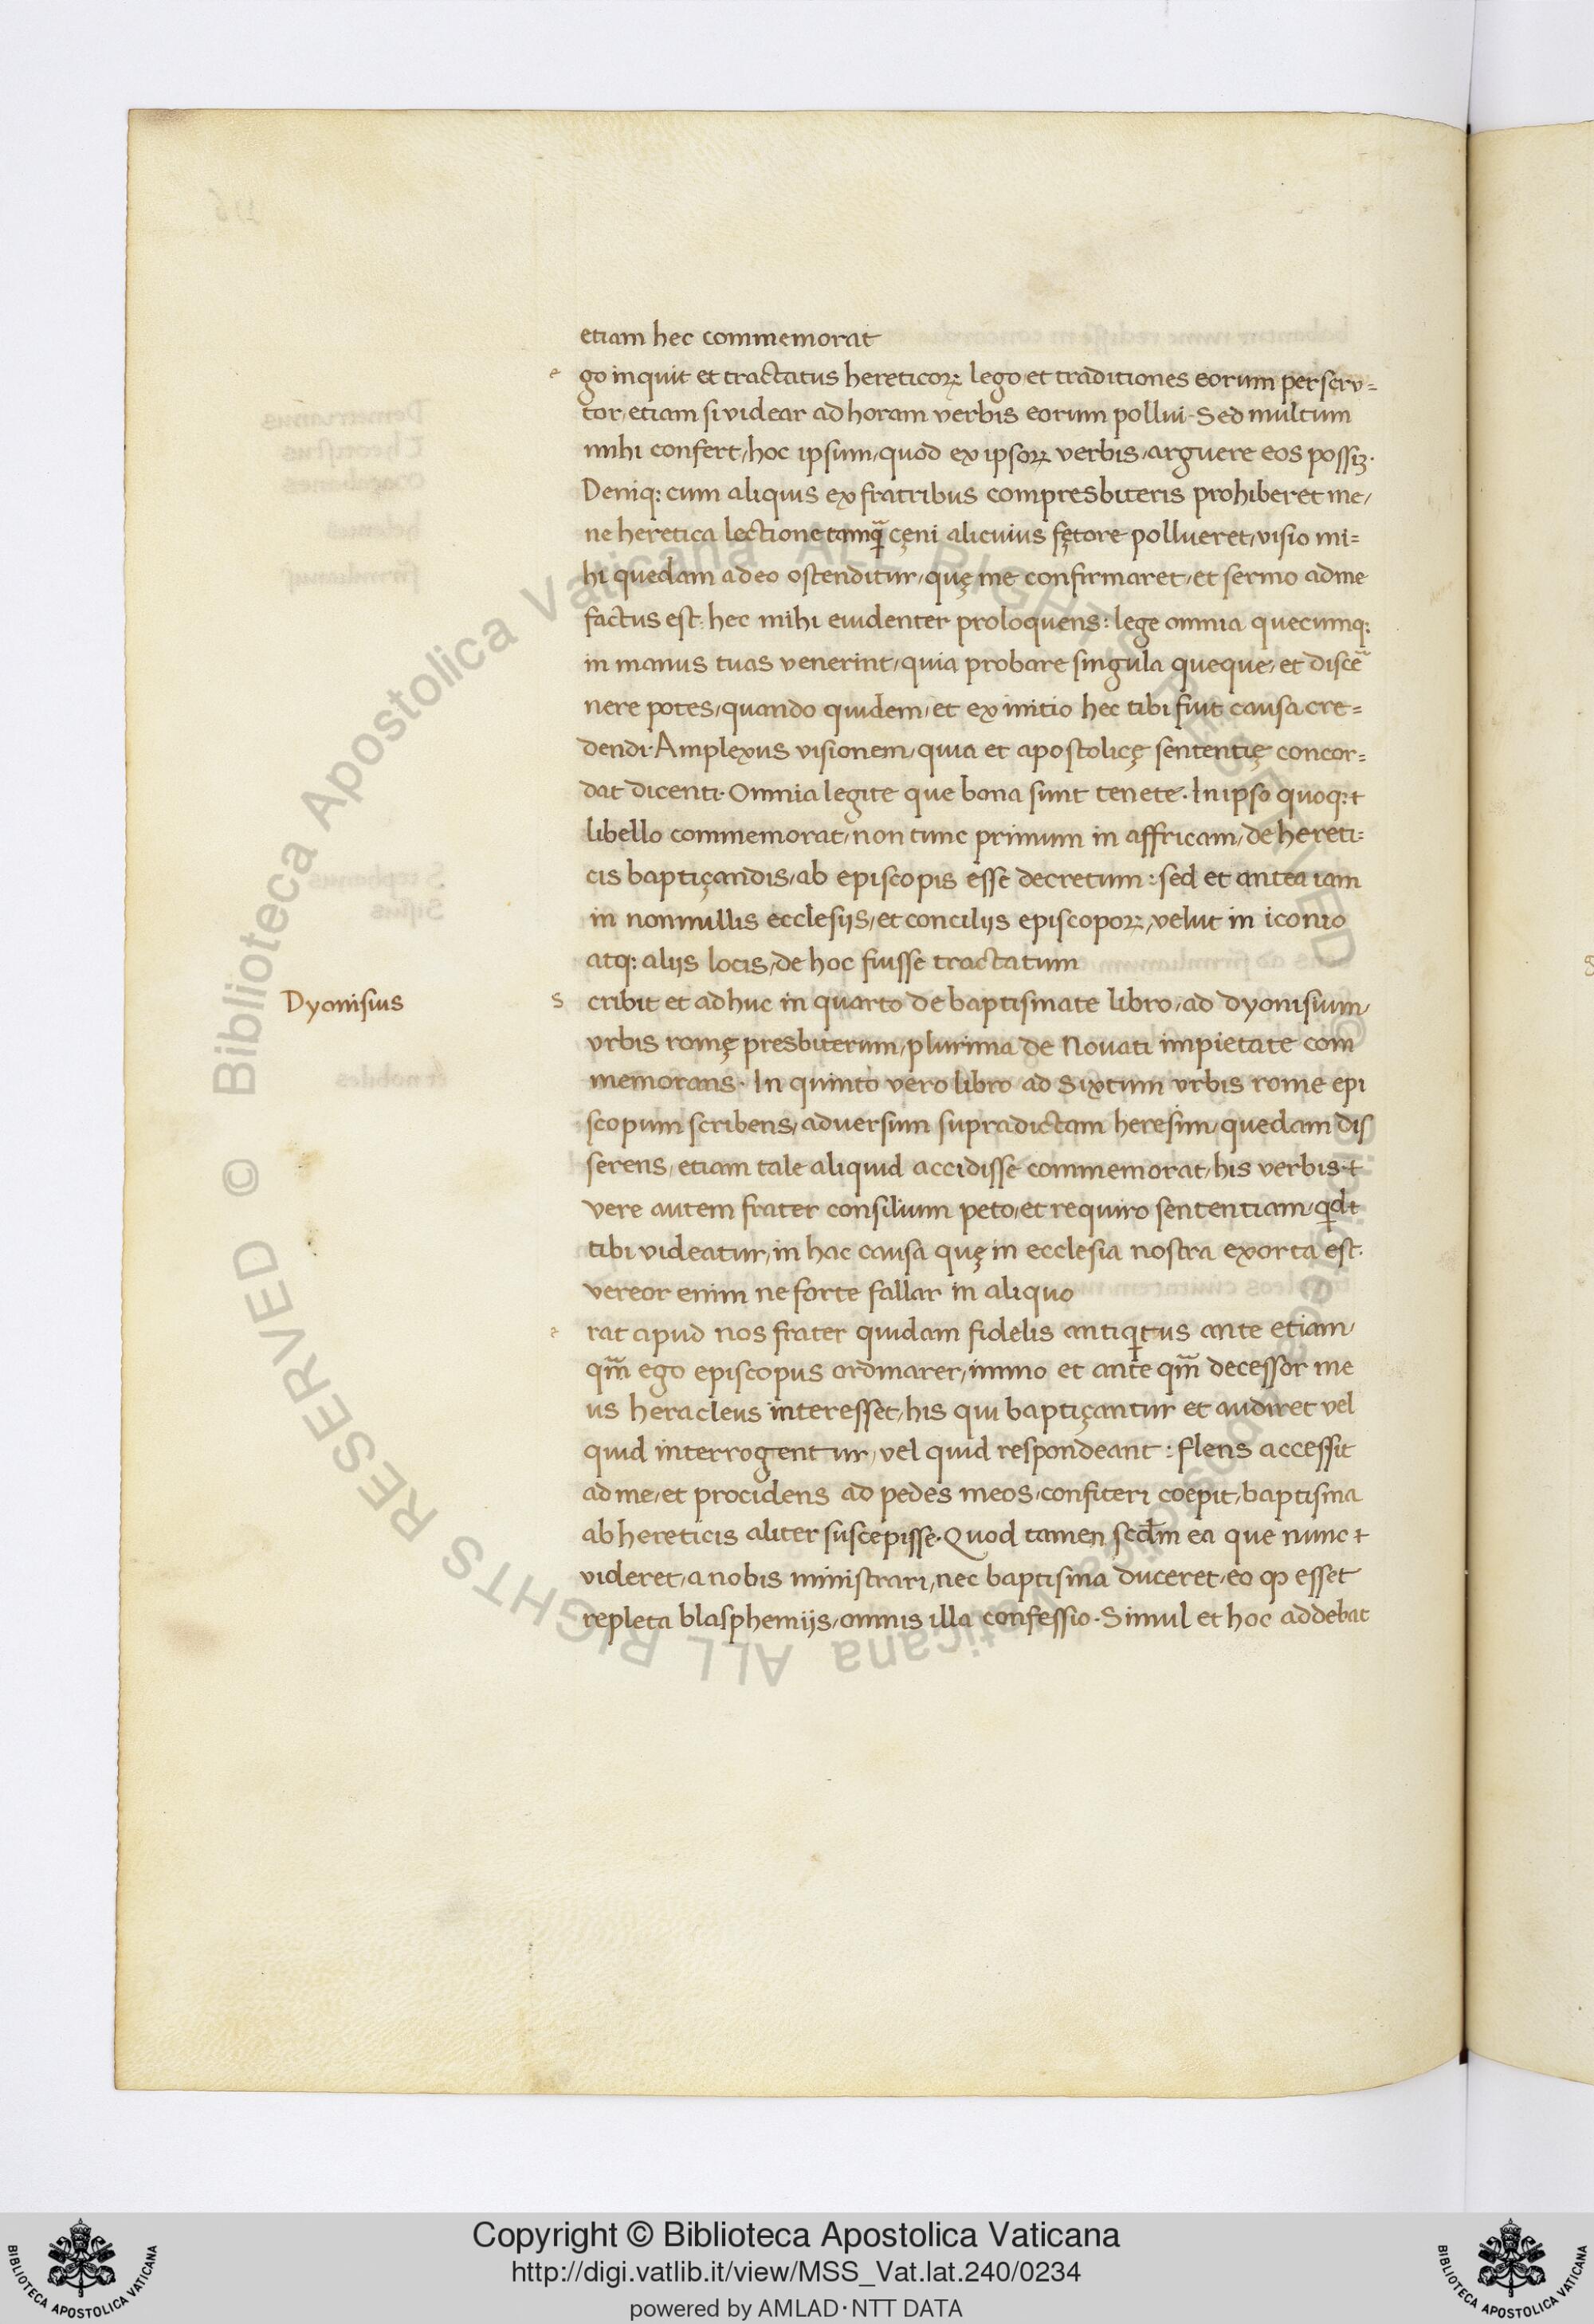 etiam hec commemorat
e go inquit et tractatus hereticoꝝ lego et traditiones eorum perscru=
tor, etiam si videar ad horam verbis eorum pollui. Sed multum
mihi confert, hoc ipsum, quod ex ipsoꝝ verbis, arguere eos possiꝫ.
Deniq: cum aliquis ex fratribus compresbiteris prohiberet me,
ne heretica lectione tamq̃ cęni alicuius fętore pollueret, visio mi=
hi quedam a deo ostenditur, quę me confirmaret, et sermo ad me
factus est, hec mihi euidenter proloquens: lege omnia quecumq:
in manus tuas venerint, quia probare singula queque, et disce
nere potes, quando quidem, et ex initio hec tibi fuit causa cre=
dendi. Amplexus visionem, quia et apostolicę sententię concor=
dat dicenti. Omnia legite que bona sunt tenete. In ipso quoq:
libello commemorat, non tunc primum in affricam, de hereti=
cis baptiçandis, ab episcopis esse decretum: sed et antea iam
in nonnullis ecclesijs, et concilijs episcopoꝝ, velut in iconio
atq: alijs locis, de hoc fuisse tractatum
Dyonisius
S cribit et adhuc in quarto de baptismate libro, ad dyonisium,
vrbis romę presbiterum, plurima de Nouati impietate com
memorans. In quinto vero libro ad Sixtum vrbis rome epi
scopum scribens, adversum supradictam heresim, quedam dis
serens, etiam tale aliquid accidisse commemorat, his verbis.
vere autem frater consilium peto, et requiro sententiam, qd
tibi videatur, in hac causa quę in ecclesia nostra exorta est.
vereor enim ne forte fallar in aliquo
e rat apud nos frater quidam fidelis antiqitus ante etiam,
qm̃ ego episcopus ordinarer, immo et ante qm̃ decessor me
us heracleus interesset, his qui baptiçantur et audiret vel
quid interrogentur, vel quid respondeant: flens accessit
ad me, et procidens ad pedes meos, confiteri coepit, baptisma
ab hereticis aliter suscepisse. Quod tamen scdm̄ ea que nunc
videret, a nobis ministrari, nec baptisma duceret, eo ꝙ esset
repleta blasphemijs, omnis illa confessio. Simul et hoc addebat
Copyright © Biblioteca Apostolica Vaticana
http://digi.vatlib.it/view/MSS_Vat.lat.240/0234
powered by AMLAD·NTT DATA